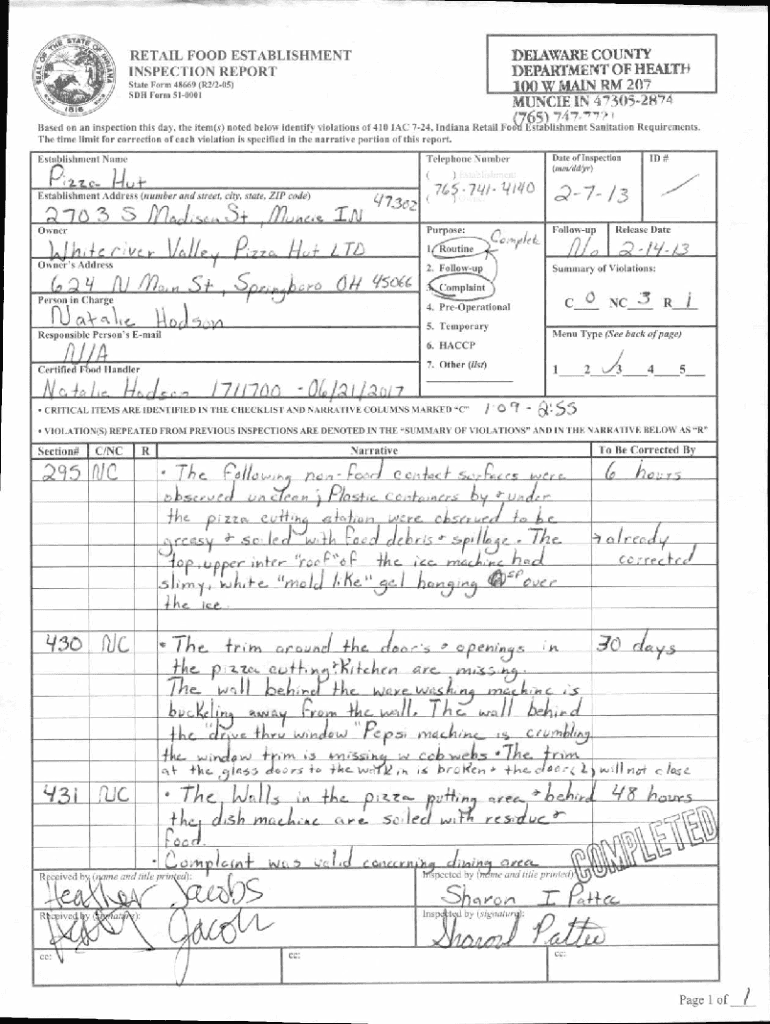 SEAL OF THE STATE OF INDIANA
1816
RETAIL FOOD ESTABLISHMENT
INSPECTION REPORT
State Form 48669 (R2/2-05)
SDH Form 51-0001
DELAWARE COUNTY
DEPARTMENT OF HEALTH
100 W MAIN RM 207
MUNCIE IN 47305-2874
(765) 747-7721
Based on an inspection this day, the item(s) noted below identify violations of 410 IAC 7-24, Indiana Retail Food Establishment Sanitation Requirements.
The time limit for correction of each violation is specified in the narrative portion of this report.
Establishment Name
Pizza Hut
Telephone Number
( ) Establishment
765-741-4140
( )
Date of Inspection
(mm/dd/yr)
2-7-13
ID #
Establishment Address (number and street, city, state, ZIP code)
2703 S Madison St, Muncie IN 47302
Owner
Whiteriver Valley Pizza Hut LTD
Owner's Address
624 N Main St, Springboro OH 45066
Person in Charge
Natalie Hodson
Responsible Person's E-mail
N/A
Certified Food Handler
Natalie Hodson 1711700 - 06/21/2017
Purpose:
1. Routine
Complete
2. Follow-up
3. Complaint
4. Pre-Operational
5. Temporary
6. HACCP
7. Other (list)
Follow-up
No
Release Date
2-14-13
Summary of Violations:
C 0 NC 3 R 1
Menu Type (See back of page)
1 2 3 4 5
• CRITICAL ITEMS ARE IDENTIFIED IN THE CHECKLIST AND NARRATIVE COLUMNS MARKED "C"
1:09 - 2:55
• VIOLATION(S) REPEATED FROM PREVIOUS INSPECTIONS ARE DENOTED IN THE "SUMMARY OF VIOLATIONS" AND IN THE NARRATIVE BELOW AS "R"
Section# C/NC R Narrative To Be Corrected By
295 NC • The following non-food contact surfaces were 6 hours
observed unclean; Plastic containers by + under
the pizza cutting station were observed to be
greasy + soiled with food debris + spillage. The → already
top, upper inter "roof" of the ice machine had corrected
slimy, white "mold like" gel hanging SP over
the ice.
430 NC • The trim around the door's + openings in 30 days
the pizza cutting + Kitchen are missing.
The wall behind the warewashing machine is
buckeling away from the wall. The wall behind
the "drive thru window" Pepsi machine is crumbling
the window trim is missing w cobwebs • The trim
at the glass doors to the walk in is broken + the door(2) will not close
431 NC • The Walls in the pizza putting area, + behind 48 hours
the dish machine are soiled with residue +
food.
• Complaint was valid concerning dining area
COMPLETED
Received by (name and title printed):
Heather Jacobs
Inspected by (name and title printed):
Sharon I Pattee
Received by (signature):
Inspected by (signature):
Sharon Pattee
cc:
cc:
cc:
Page 1 of 1